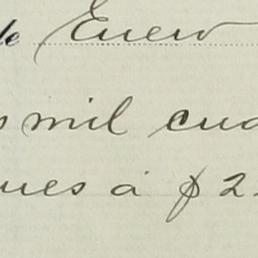 de Enero
s mil cua
ues á $ 2